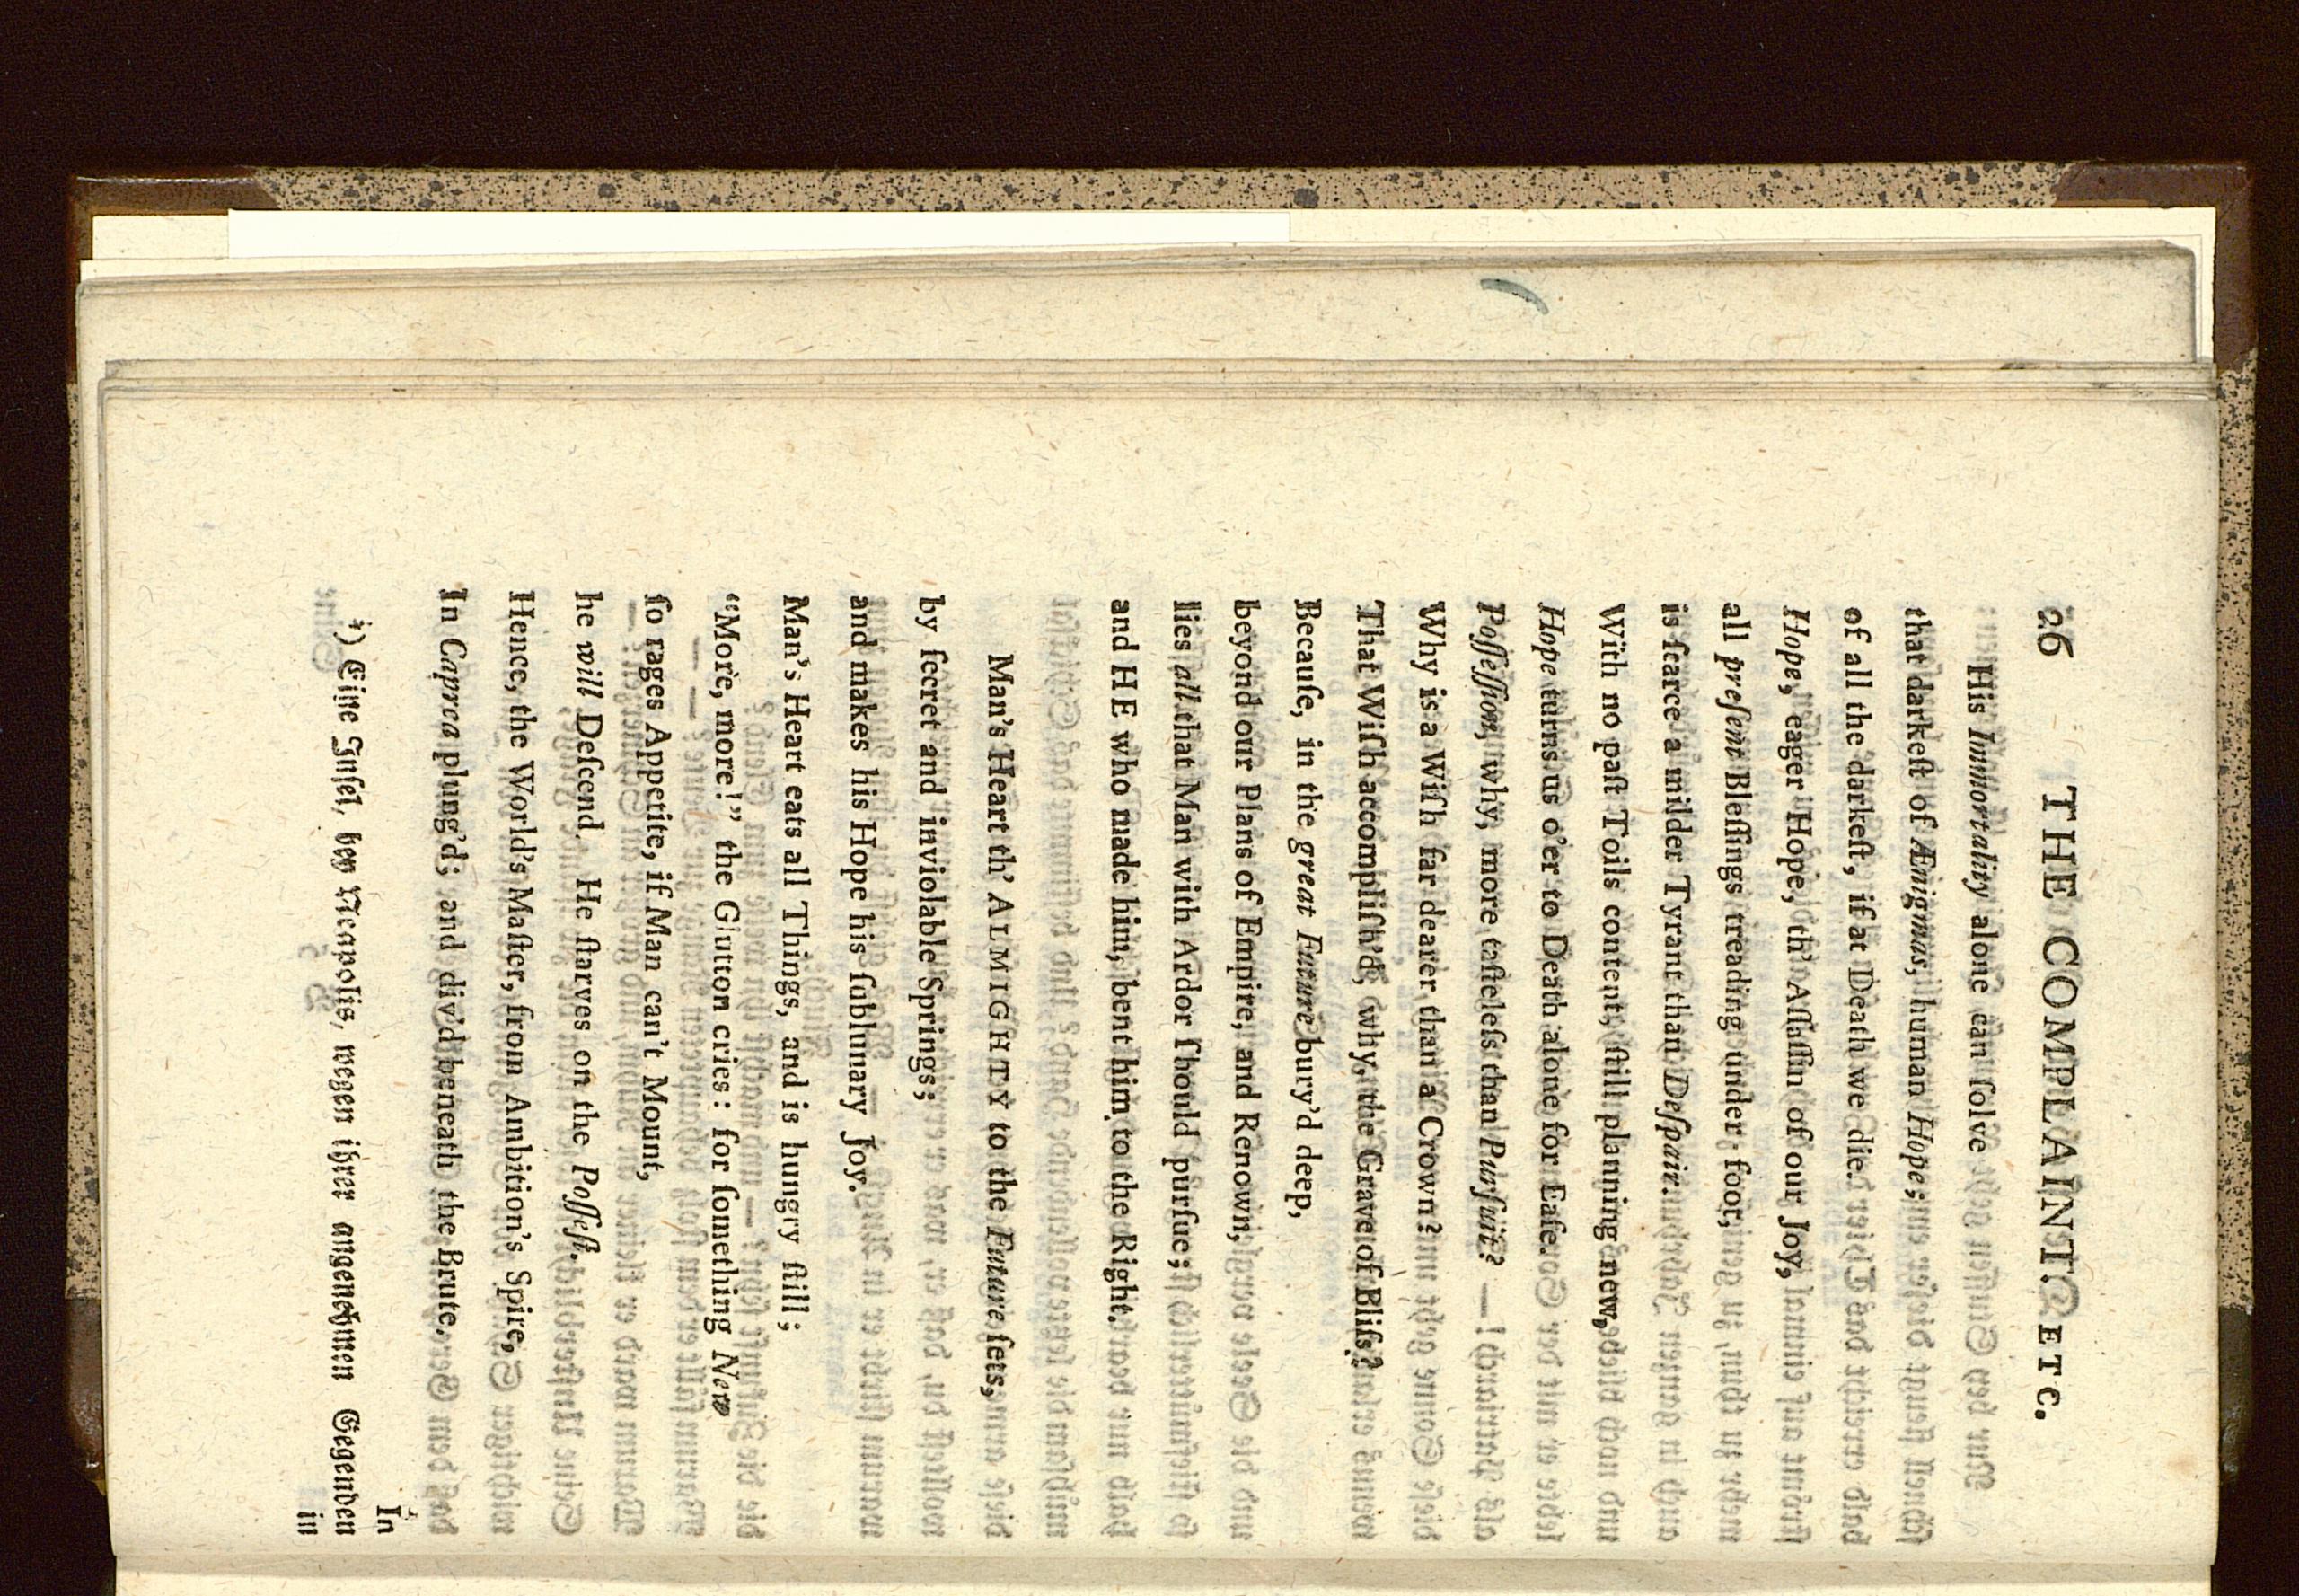 26 THE COMPLAINT. ETC.
His Immortality alone can ſolve
that darkeſt of Ænigmas, human Hope;
of all the darkeſt, if at Death we die.
Hope, eager Hope, th' Aſſaſſin of our Joy,
all preſent Bleſſings treading under foot,
is ſcarce a milder Tyrant than Deſpair.
With no paſt Toils content, ſtill planning new,
Hope turns us o'er to Death alone for Eaſe.
Poſſeſſion, why, more taſteleſs than Purſuit?
Why is a Wiſh far dearer than a Crown?
That Wiſh accompliſh'd, why, the Grave of Bliſs?
Becauſe, in the great Future bury'd deep,
beyond our Plans of Empire, and Renown,
lies all that Man with Ardor ſhould purſue;
and HE who made him, bent him to the Right.
Man's Heart th' ALMIGHTY to the Future ſets,
by ſecret and inviolable Springs;
and makes his Hope his ſublunary Joy.
Man's Heart eats all Things, and is hungry ſtill;
“More, more!” the Glutton cries: for ſomething New
ſo rages Appetite, if Man can't Mount,
he will Deſcend. He ſtarves on the Poſſeſt.
Hence, the World's Maſter, from Ambition's Spire,
In Caprea plung'd; and div'd beneath the Brute.
In
*) Eine Inſel, bey Neapolis, wegen ihrer angenehmen Gegenden
in